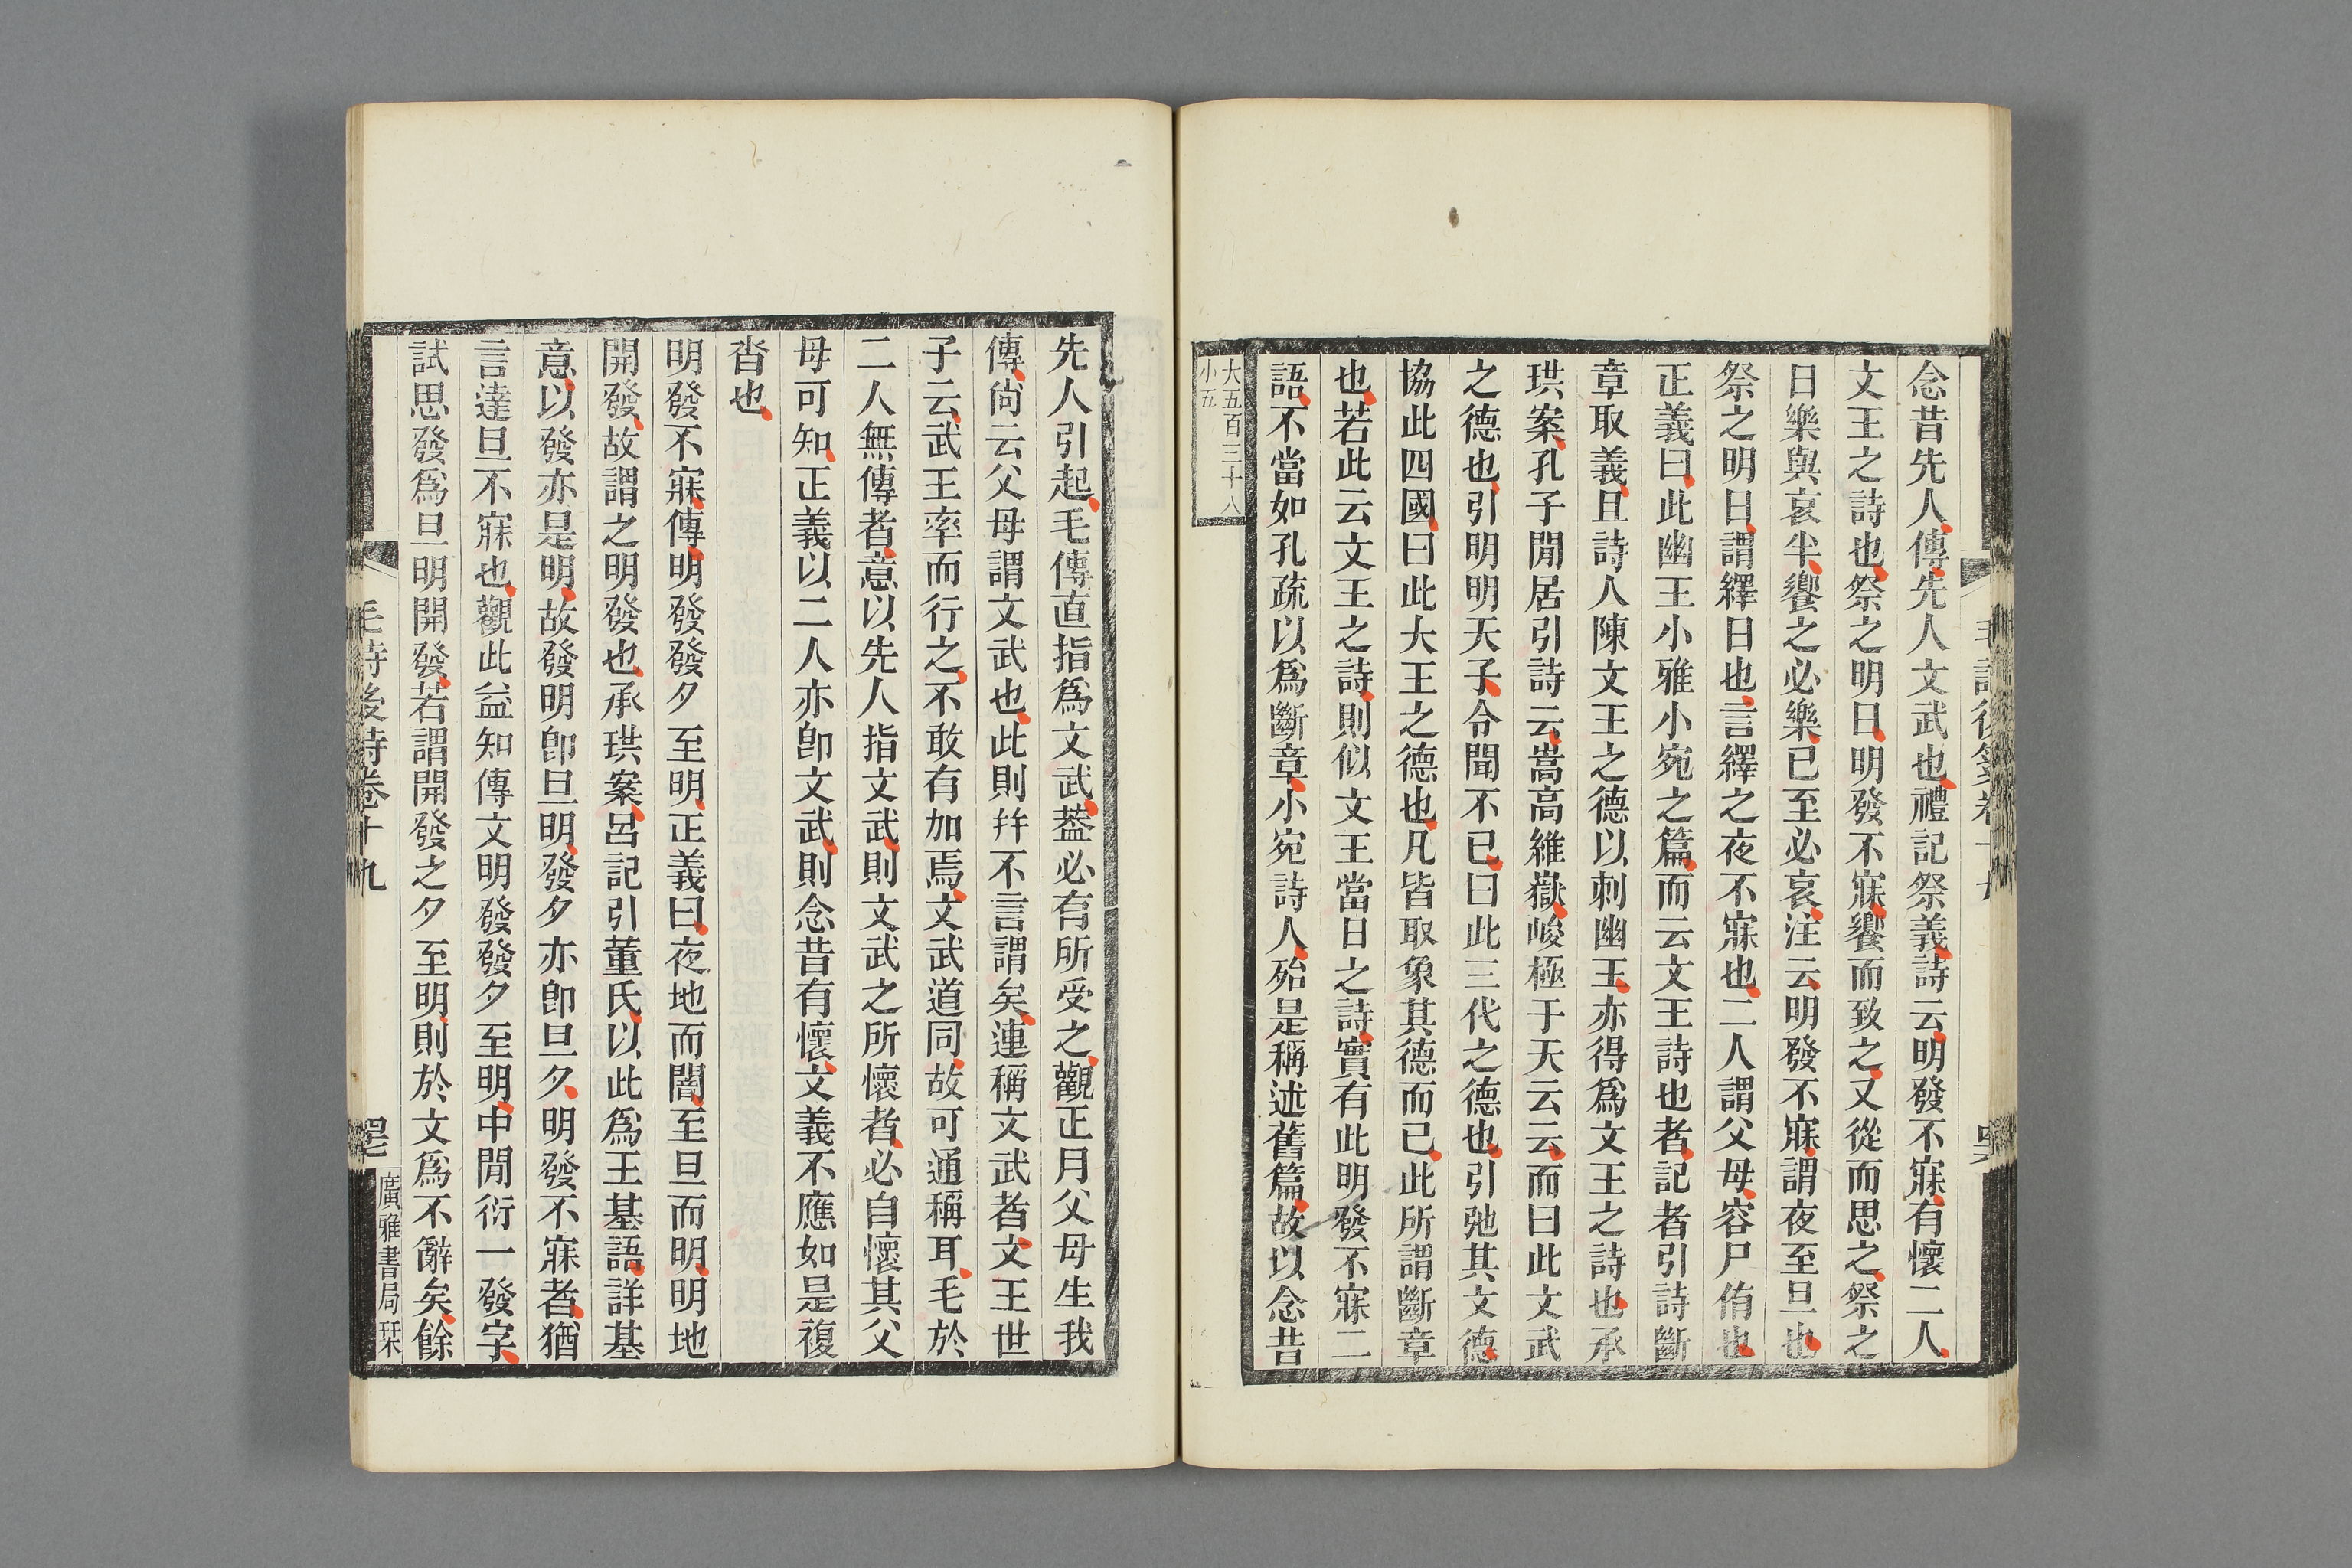 念昔先人傳先人文武也禮記祭義詩云明發不寐有懷二人
文王之詩也祭之明日明發不寐饗而致之又從而思之祭之
日樂與哀半饗之必樂已至必哀注云明發不寐謂夜至旦也
祭之明日謂繹日也言繹之夜不寐也二人謂父母容尸侑也
正義曰此幽王小雅小宛之篇而云文王詩也者記者引詩斷
章取義且詩人陳文王之德以刺幽王亦得爲文王之詩也承
珙案孔子閒居引詩云嵩高維嶽峻極于天云云而曰此文武
之德也引明明天子令聞不已曰此三代之德也引弛其文德
協此四國曰此大王之德也凡皆取象其德而已此所謂斷章
也若此云文王之詩則似文王當日之詩實有此明發不寐二
語不當如孔疏以爲斷章小宛詩人殆是稱述舊篇故以念昔
大五百三十八
小五
先人引起毛傳直指爲文武葢必有所受之觀正月父母生我
傳尙云父母謂文武也此則幷不言謂矣連稱文武者文王世
子云武王率而行之不敢有加焉文武道同故可通稱耳毛於
二人無傳者意以先人指文武則文武之所懷者必自懷其父
母可知正義以二人亦卽文武則念昔有懷文義不應如是複
沓也
明發不寐傳明發發夕至明正義曰夜地而闇至旦而明明地
開發故謂之明發也承珙案呂記引董氏以此爲王基語詳基
意以發亦是明故發明卽旦明發夕亦卽旦夕明發不寐者猶
言達旦不寐也觀此益知傳文明發發夕至明中閒衍一發字
試思發爲旦明開發若謂開發之夕至明則於文爲不辭矣餘
毛詩後箋卷十九
廣雅書局栞